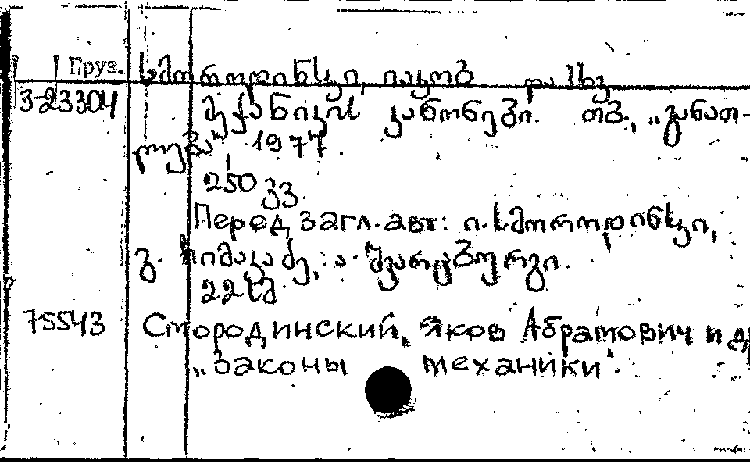 Груз. სმოროდინსკი, იაკობ და სხვ.
3-23304 მექანიკის კანონები. თბ., „განათ-
ლება" 1977
250 გვ.
Перед загл. авт: ი. სმოროდინსკი,
გ. ჩიმაკაძე, ა. შვარცბურგი.
22სმ
75543 Смородинский, Яков Абрамович и д
„Законы механики".